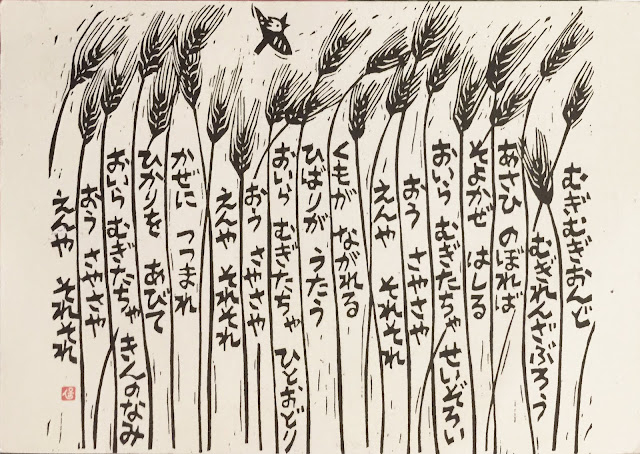 むぎむぎおんど
むぎれんざぶろう
あさひ のぼれば
そよかぜ はしる
おいら むぎたちゃ せいぞろい
おう さやさや
えんや それそれ
くもが ながれる
ひばりが うたう
おいら むぎたちゃ ひとおどり
おう さやさや
えんや それそれ
かぜに つつまれ
ひかりを あびて
おいら むぎたちゃ きんのなみ
おう さやさや
えんや それそれ